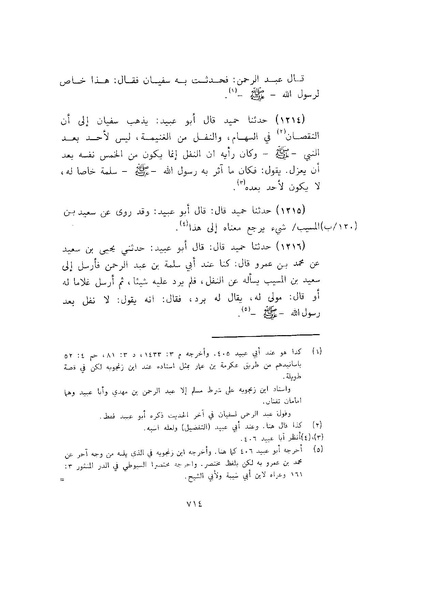 قال عبد الرحمن: فحدثت به سفيان فقال: هذا خاص
لرسول الله - ﷺ -(١).
(١٢١٤) حدثنا حميد قال أبو عبيد: يذهب سفيان إلى أن
النقصان(٢) في السهام، والنفل من الغنيمة، ليس لأحد بعد
النبي - ﷺ - وكان رأيه ان النفل إنما يكون من الخمس نفسه بعد
أن يعزل. يقول: فكان ما آثر به رسول الله - ﷺ - سلمة خاصا له،
لا يكون لأحد بعده(٣).
(١٢١٥) حدثنا حميد قال: قال أبو عبيد: وقد روى عن سعيد بن
(١٣٠/ب)المسيب/ شيء يرجع معناه إلى هذا(٤).
(١٢١٦) حدثنا حميد قال: قال أبو عبيد: حدثني يحيى بن سعيد
عن محمد بن عمرو قال: كنا عند أبي سلمة بن عبد الرحمن فأرسل إلى
سعيد بن المسيب يسأله عن النفل، فلم يرد عليه شيئا، ثم أرسل غلاما له
أو قال: مولى له، يقال له برد، فقال: انه يقول: لا نفل بعد
رسول الله - ﷺ -(٥).
(١) كذا هو عند أبي عبيد ٤٠٥. وأخرجه م ٣: ١٤٣٣، د ٣: ٨١، حم ٤: ٥٢
بأسانيدهم من طريق عكرمة بن عمار بمثل اسناده عند ابن زنجويه لكن في قصة
طويلة.
واسناد ابن زنجويه على شرط مسلم إلا عبد الرحمن بن مهدي وأبا عبيد وهما
امامان ثقتان.
وقول عبد الرحمن لسفيان في آخر الحديث ذكره أبو عبيد فقط.
(٢) كذا قال هنا. وعند أبي عبيد (التفضيل) ولعله اسبه.
(٣)،(٤)أنظر أبا عبيد ٤٠٦.
(٥) أخرجه أبو عبيد ٤٠٦ كما هنا. وأخرجه ابن زنجويه في الذي يليه من وجه آخر عن
محمد بن عمرو به لكن بلفظ مختصر. وأخرجه مختصرا السيوطي في الدر المنثور ٣:
١٦١ وعزاه لابن أبي شيبة ولأبي الشيخ. =
٧١٤